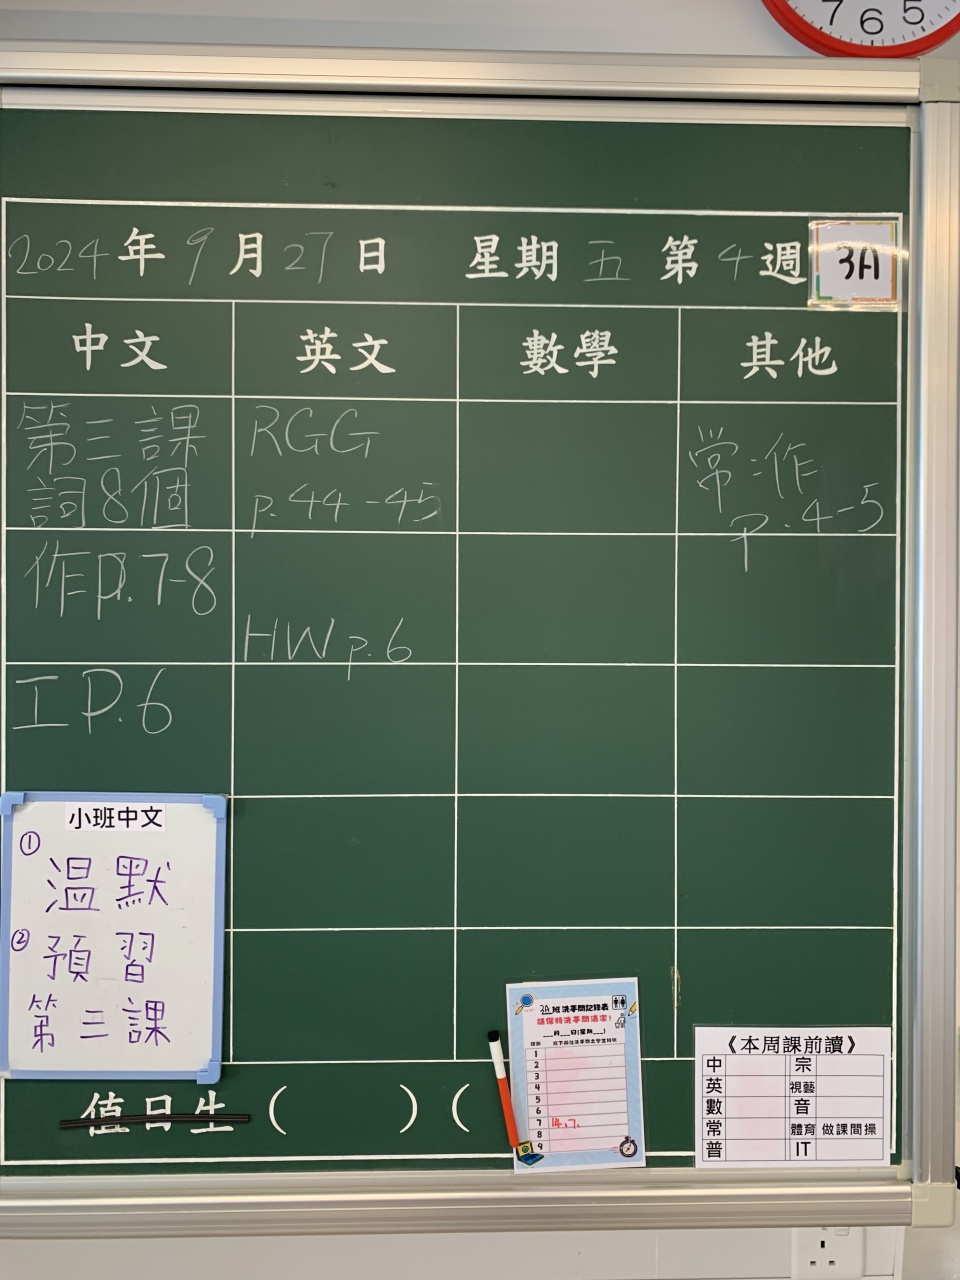 7 6 5
2024年9月27日 星期五 第4週 3A
中文 英文 數學 其他
第三課
詞8個
作p.7-8
工P.6
RGG
p.44-45
HW p.6
常:作
P.4-5
小班中文
① 溫默
② 預習
第三課
值日生 ( ) (
3A班洗手間記錄表
請保持洗手間清潔!
__月__日(星期__)
1
2
3
4
5
6
7 14.7.
8
9
《本周課前讀》
中 宗
英 視藝
數 音
常 體育 做課間操
普 IT